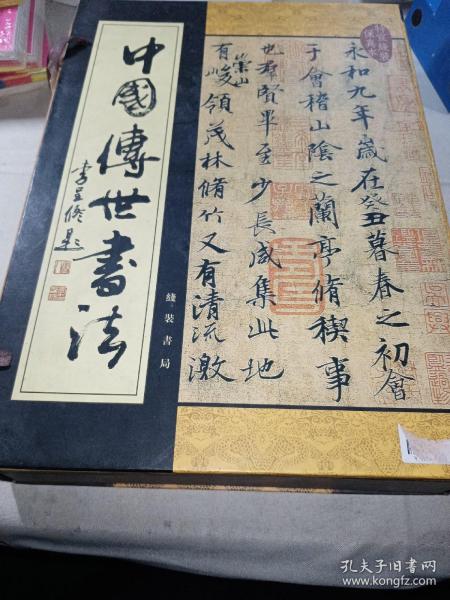 中國傳世書法
李呈修題
綫裝書局
永和九年歲在癸丑暮春之初會
于會稽山陰之蘭亭脩稧事
也羣賢畢至少長咸集此地
有崇山峻領茂林脩竹又有清流激
孔夫子旧书网
www.kongfz.com